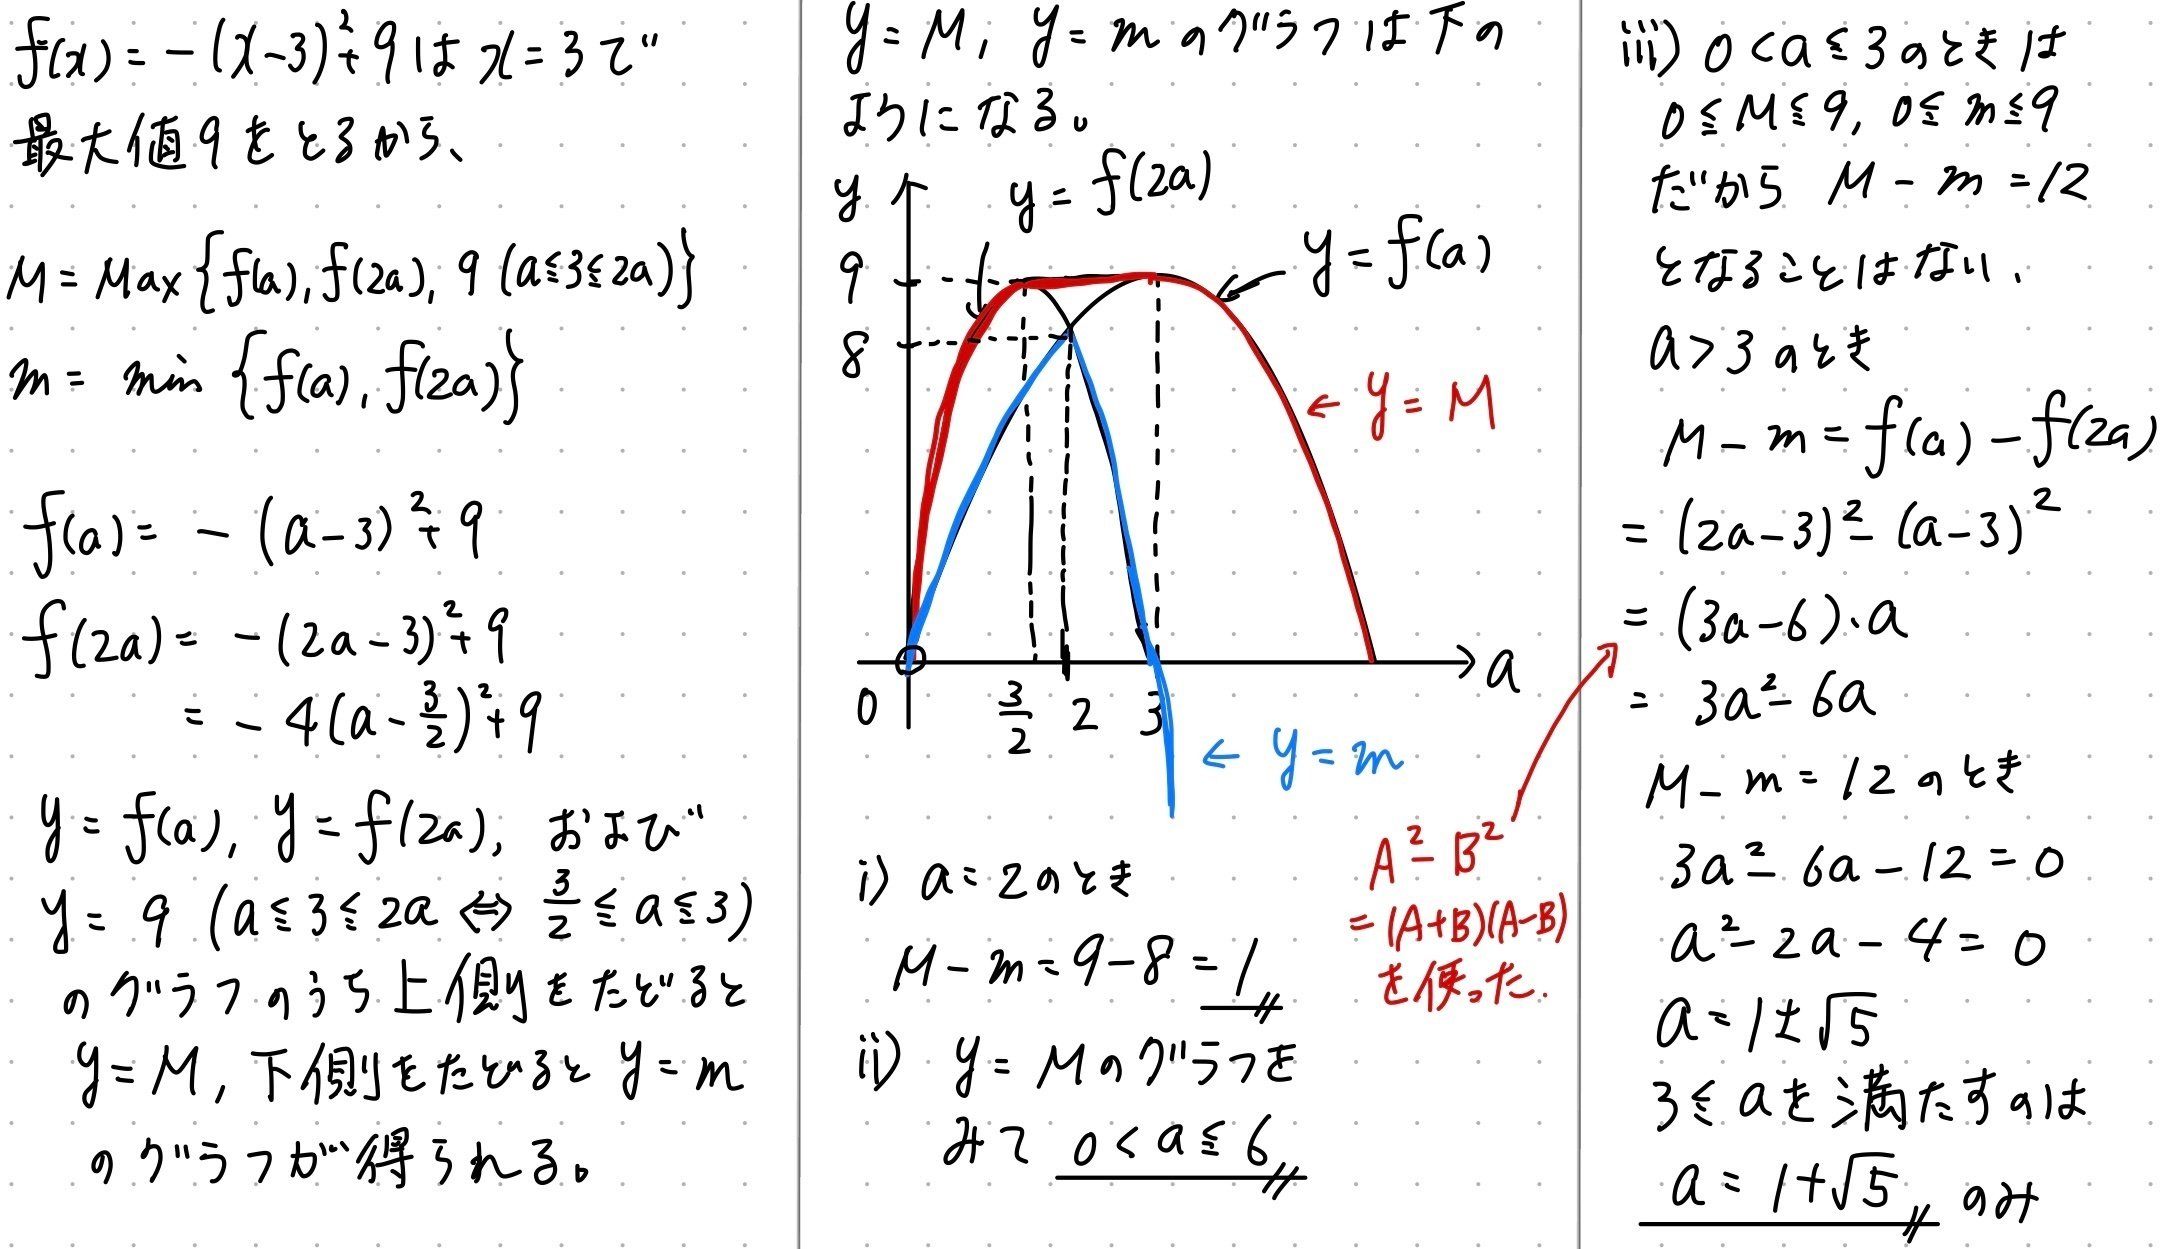 f(x) = -(x-3)²+9 は x=3で
最大値9をとるから、
M = Max {f(a), f(2a), 9 (a≦3≦2a)}
m = min {f(a), f(2a)}
f(a) = -(a-3)²+9
f(2a) = -(2a-3)²+9
= -4(a-3/2)²+9
y = f(a), y = f(2a), および
y = 9 (a≦3≦2a ⇔ 3/2 ≦ a ≦ 3)
のグラフのうち上側をたどると
y = M, 下側をたどると y = m
のグラフが得られる。
y = M, y = m のグラフは下の
ようになる。
y
y = f(2a)
y = f(a)
9
8
← y = M
a
0
3/2
2
3
← y = m
i) a = 2のとき
M - m = 9 - 8 = 1
ii) y = Mのグラフを
みて 0 < a ≦ 6
A² - B²
= (A+B)(A-B)
を使った.
iii) 0 < a ≦ 3のときは
0 ≦ M ≦ 9, 0 ≦ m ≦ 9
だから M - m = 12
となることはない、
a > 3のとき
M - m = f(a) - f(2a)
= (2a-3)² - (a-3)²
= (3a-6)・a
= 3a² - 6a
M - m = 12のとき
3a² - 6a - 12 = 0
a² - 2a - 4 = 0
a = 1±√5
3≦aを満たすのは
a = 1+√5 のみ